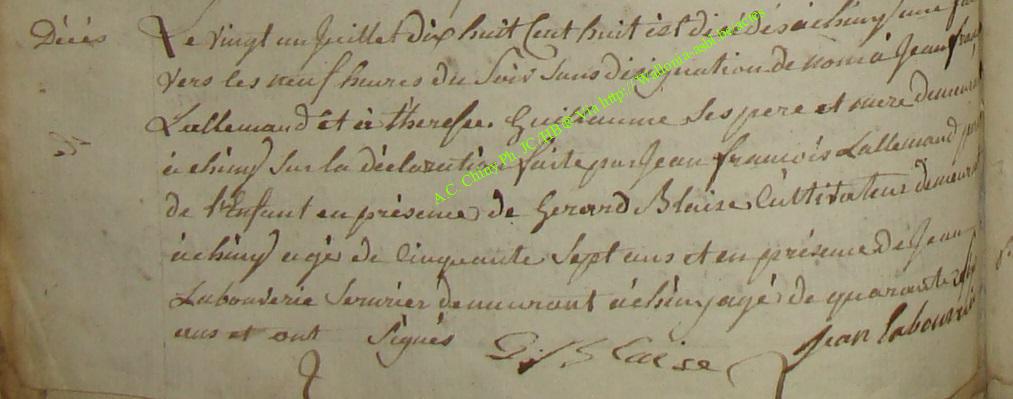 Décés
Le vingt un Juillet dix huit Cent huit est décédés à chiny une
vers les neuf heures du Soir Sans désignation de nom à Jean
Lallemand et à therese Guillaume Ses pere et mere demeurant
à chiny Sur la déclaration faite par Jean francois Lallemand
de l'Enfant en présence de Gerard Blaise Cultivateur demeurant
à chiny agé de Cinquante Sept ans et en présence de Jean
Labouverie Serurier demeurant à chiny agé de quarante
ans et ont Signés
G J Blaise
Jean Labouverie
A.C. Chiny Ph. JC HB@ Via http://Wallonia-asbl.be/actes